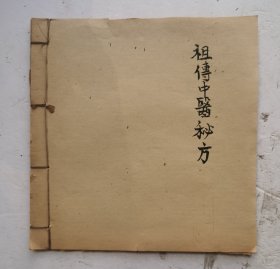 祖傳中醫秘方